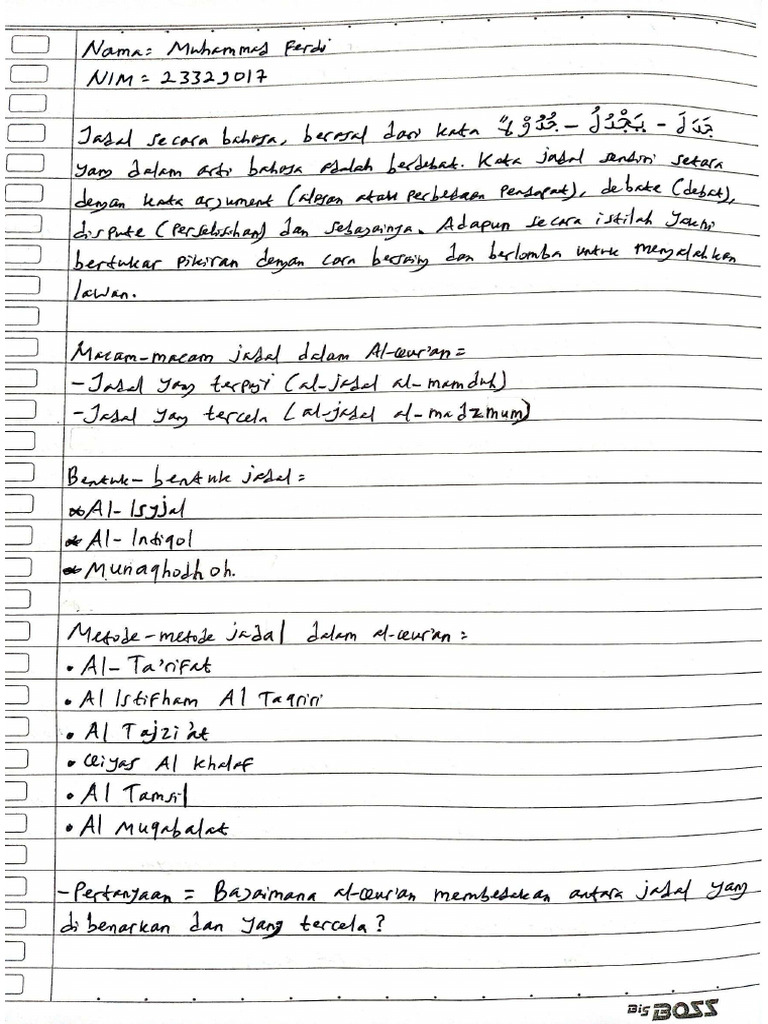 Nama = Muhammad Ferdi
NIM = 23329017
Jadal secara bahasa, berasal dari kata "جَدَلَ - يَجْدُلُ - جُدُوْلًا"
yang dalam arti bahasa adalah berdebat. Kata jadal sendiri setara
dengan kata argument (alasan atau perbedaan pendapat), debate (debat),
dispute (perselisihan) dan sebagainya. Adapun secara istilah yakni
bertukar pikiran dengan cara bersaing dan berlomba untuk mengalahkan
lawan.
Macam-macam jadal dalam Al-Qur'an =
- Jadal yang terpuji (al-jadal al-mamduh)
- Jadal yang tercela (al-jadal al-madzmum)
Bentuk-bentuk jadal =
* Al-Isyjal
* Al-Intiqol
* Munaqhodhoh.
Metode-metode jadal dalam al-Qur'an =
• Al-Ta'rifat
• Al Istifham Al Taqriri
• Al Tajzi'at
• Qiyas Al Khalaf
• Al Tamsil
• Al Muqabalat
- Pertanyaan = Bagaimana al-Qur'an membedakan antara jadal yang
dibenarkan dan yang tercela?
Big BOSS